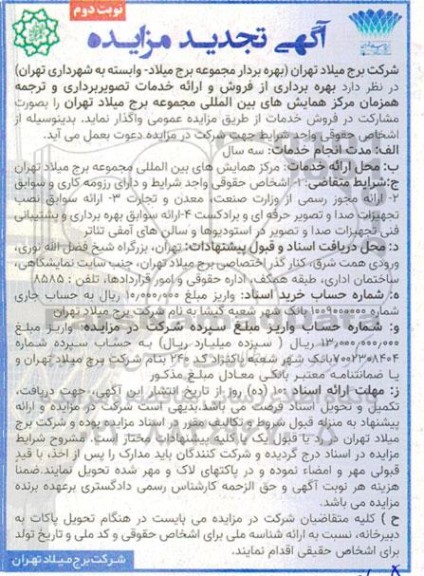 نوبت دوم
آگهی تجدید مزایده
شرکت برج میلاد تهران (بهره بردار مجموعه برج میلاد- وابسته به شهرداری تهران)
در نظر دارد بهره برداری از فروش و ارائه خدمات تصویربرداری و ترجمه
همزمان مرکز همایش های بین المللی مجموعه برج میلاد تهران را بصورت
مشارکت در فروش خدمات از طریق مزایده عمومی واگذار نماید. بدینوسیله از
اشخاص حقوقی واجد شرایط جهت شرکت در مزایده دعوت بعمل می آید.
الف: مدت انجام خدمات: سه سال
ب: محل ارائه خدمات: مرکز همایش های بین المللی مجموعه برج میلاد تهران
ج: شرایط متقاضی: ۱- اشخاص حقوقی واجد شرایط و دارای رزومه کاری و سوابق
۲- ارائه مجوز رسمی از وزارت صنعت، معدن و تجارت ۳- ارائه سوابق نصب
تجهیزات صدا و تصویر حرفه ای و برادکست ۴-ارائه سوابق بهره برداری و پشتیبانی
فنی تجهیزات صدا و تصویر در استودیوها و سالن های آمفی تئاتر
د: محل دریافت اسناد و قبول پیشنهادات: تهران، بزرگراه شیخ فضل الله نوری،
ورودی همت شرق، کنار گذر اختصاصی برج میلاد تهران، جنب سایت نمایشگاهی،
ساختمان اداری، طبقه همکف، اداره حقوقی و امور قراردادها، تلفن : ۸۵۸۵
ه: شماره حساب خرید اسناد: واریز مبلغ ۱۰٫۰۰۰٫۰۰۰ ریال به حساب جاری
شماره بانک شهر شعبه کیشا به نام شرکت برج میلاد تهران
و: شماره حساب واریز مبلغ سپرده شرکت در مزایده: واریز مبلغ
۱۳٫۰۰۰٫۰۰۰٫۰۰۰ ریال ( سیزده میلیارد ریال) به حساب سپرده شماره
۷۰۰۲۳۰۸۴۰۴ بانک شهر شعبه پاکنژاد کد ۲۴۰ بنام شرکت برج میلاد تهران و
یا ضمانتنامه معتبر بانکی معادل مبلغ مذکور
ز: مهلت ارائه اسناد ۱۰ (ده) روز از تاریخ انتشار این آگهی، جهت دریافت،
تکمیل و تحویل اسناد فرصت می باشد.بدیهی است شرکت در مزایده و ارائه
پیشنهاد به منزله قبول شروط و تکالیف مقرر در اسناد مزایده بوده و شرکت برج
میلاد تهران در رد یا قبول یک یا کلیه پیشنهادات مختار است. مشروح شرایط
مزایده در اسناد درج گردیده و شرکت کنندگان باید مدارک را پس از اخذ، با قید
قبولی مهر و امضاء نموده و در پاکتهای لاک و مهر شده تحویل نمایند.ضمنا
هزینه هر نوبت آگهی و حق الزحمه کارشناس رسمی دادگستری برعهده برنده
مزایده می باشد.
ح ) کلیه متقاضیان شرکت در مزایده می بایست در هنگام تحویل پاکات به
دبیرخانه، نسبت به ارائه شناسه ملی برای اشخاص حقوقی و کد ملی و تاریخ تولد
برای اشخاص حقیقی اقدام نمایند.
شرکت برج میلاد تهران